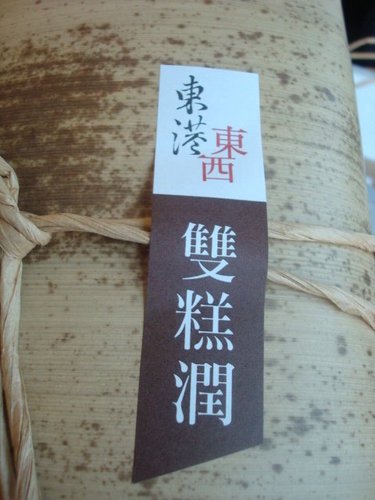 東港
東西
雙糕潤